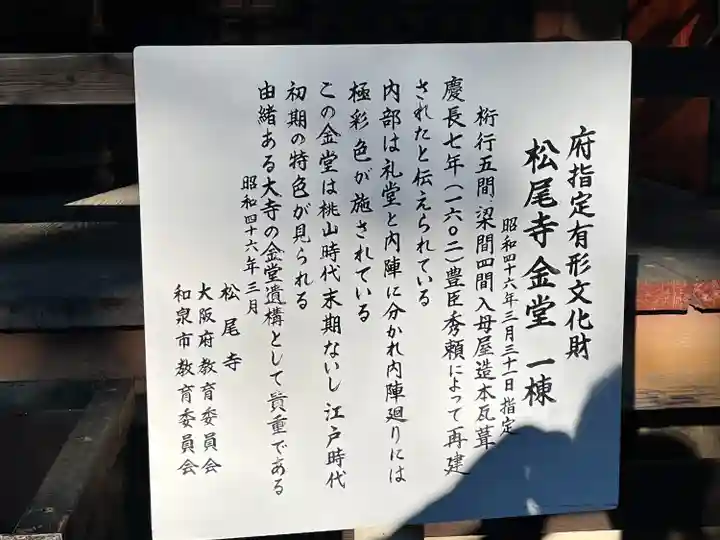 府指定有形文化財
松尾寺金堂 一棟
昭和四十六年三月三十一日指定
桁行五間、梁間四間 入母屋造本瓦葺
慶長七年(一六〇二)豊臣秀頼によって再建
されたと伝えられている
内部は礼堂と内陣に分かれ内陣廻りには
極彩色が施されている
この金堂は桃山時代末期ないし江戸時代
初期の特色が見られる
由緒ある大寺の金堂遺構として貴重である
昭和四十六年三月
松尾寺
大阪府教育委員会
和泉市教育委員会